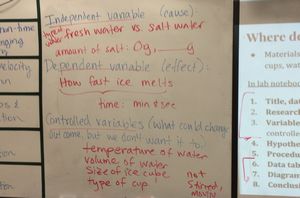 Independent variable (cause):
type of water
fresh water vs. salt water
amount of salt: 0g, ___g
Dependent variable (effect):
How fast ice melts
time: min & sec
Controlled variables (what could change
outcome, but we don't want it to)
temperature of water
volume of water
Size of ice cube
type of cup
not
Stirred,
Where de
Materials
cups, wat
In lab notebo
1. Title, da
2. Researc
3. Variable
controlle
4. Hypothe
5. Procedu
6. Data tab
7. Diagram
8. Conclus